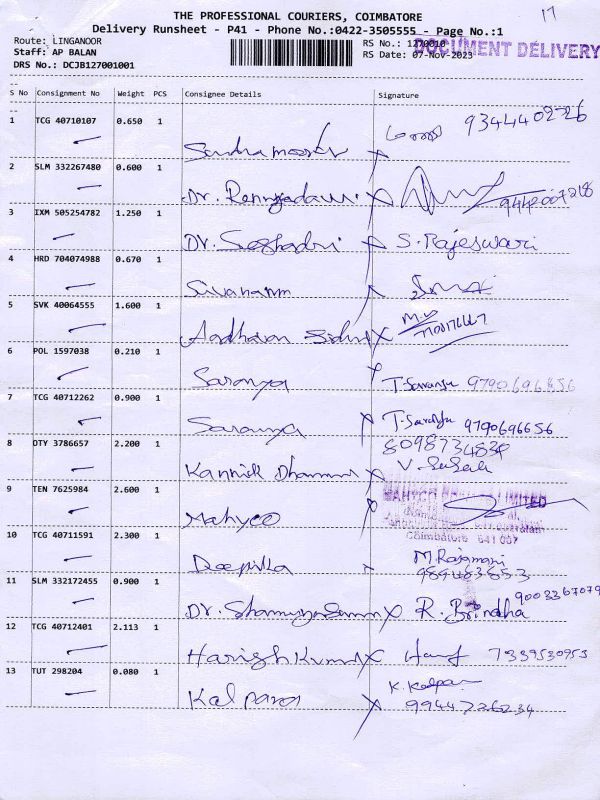 17
THE PROFESSIONAL COURIERS, COIMBATORE
Delivery Runsheet - P41 - Phone No.:0422-3505555 - Page No.:1
Route: LINGANOOR
Staff: AP BALAN
DRS No.: DCJB127001001
RS No.: 1270010
RS Date: 07-Nov-2023
DOCUMENT DELIVERY
S No Consignment No Weight PCS Consignee Details Signature
1 TCG 40710107 0.650 1
9344402726
2 SLM 332267480 0.600 1
Dr.
3 IXM 505254782 1.250 1
Dr. Seshadri X S. Rajeswari
4 HRD 704074988 0.670 1
5 SVK 40064555 1.600 1
6 POL 1597038 0.210 1
Saranya X T. Saranya 9790696656
7 TCG 40712262 0.900 1
Saranya X T. Saranya 9790696656
8 DTY 3786657 2.200 1
8098734834
Kannik X
9 TEN 7625984 2.600 1
Mahyco
MAHYCO LIMITED
Coimbatore 641 007
10 TCG 40711591 2.300 1
Deepika X M. Rajamani
11 SLM 332172455 0.900 1
Dr. X R. Brindha 9003367079
12 TCG 40712401 2.113 1
Harish Kumar X 7339530953
13 TUT 298204 0.080 1
Kalpana X K. Kalpana
9944736234